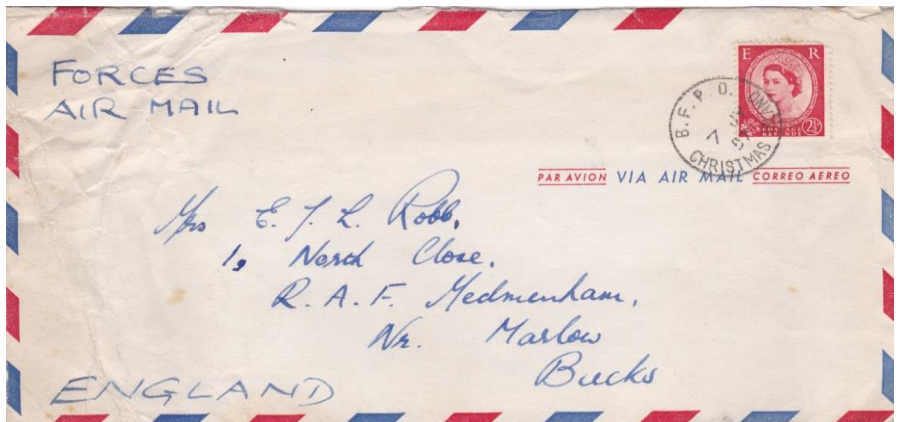 FORCES
AIR MAIL
E R
POSTAGE
REVENUE
2½D
B.F.P.O.
7
CHRISTMAS
PAR AVION VIA AIR MAIL CORREO AEREO
Mrs E. J. L. Robb,
1, North Close.
R.A.F. Medmenham,
Nr. Marlow
Bucks
ENGLAND